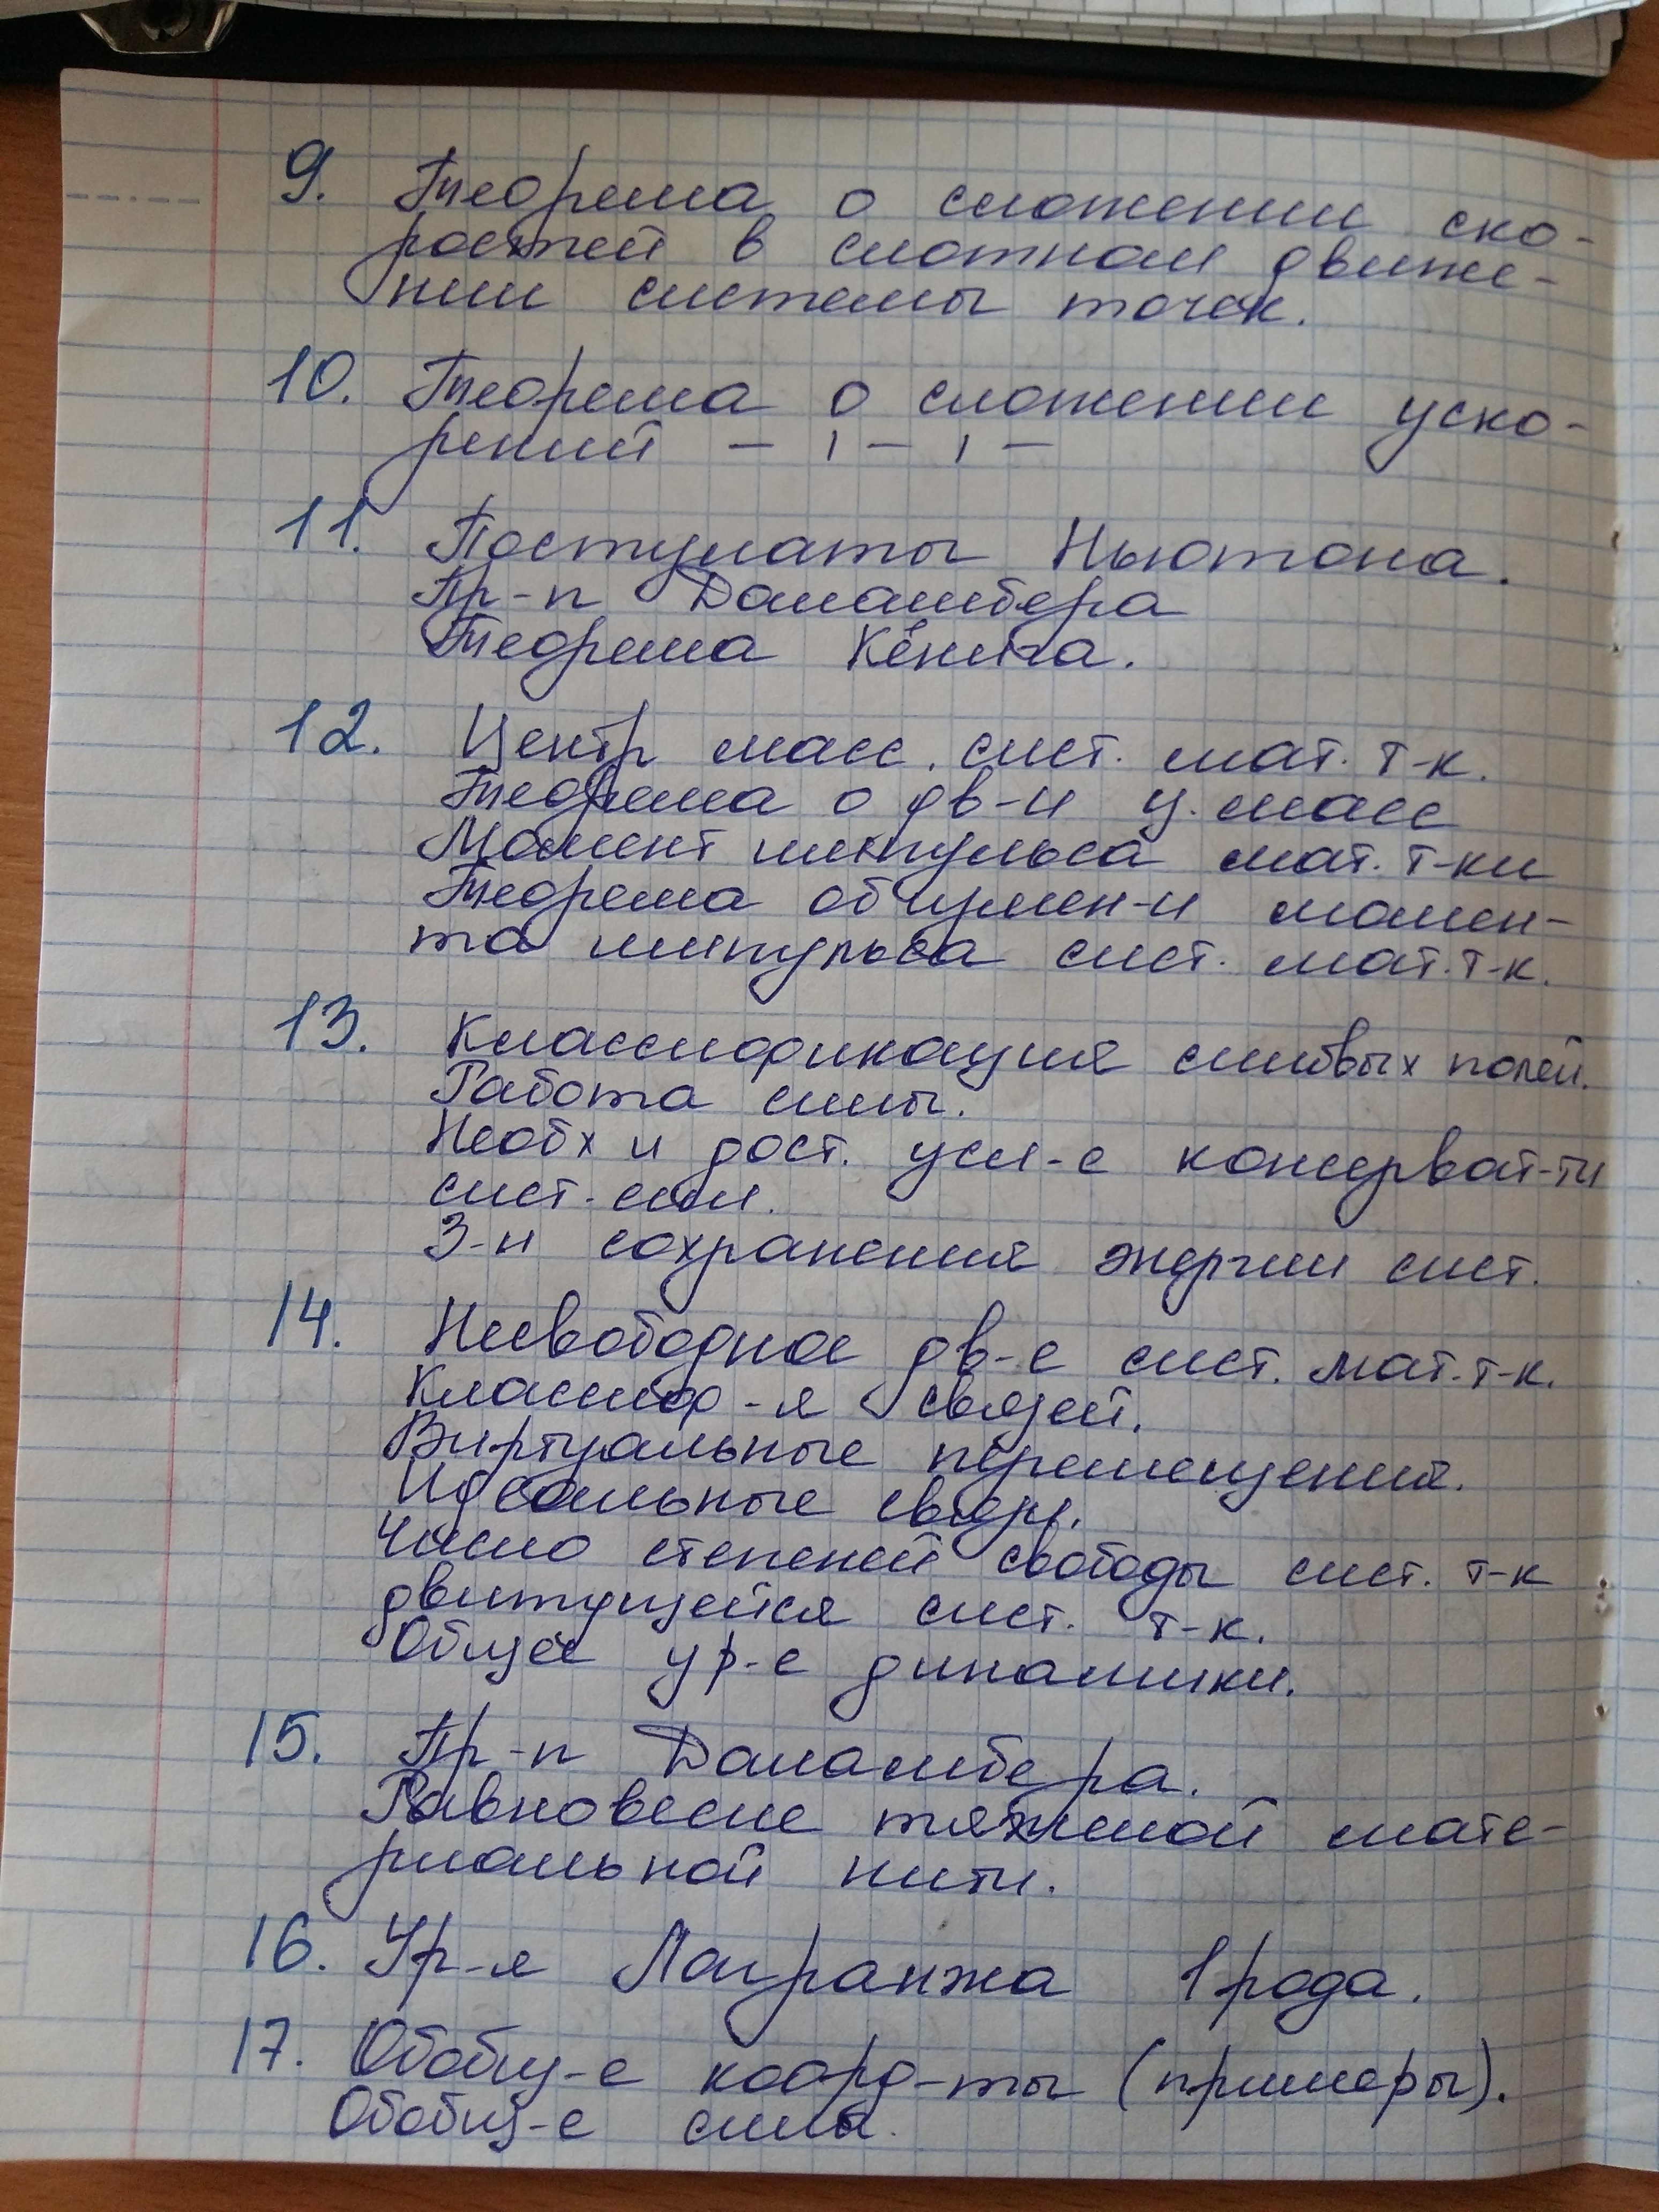 9. Теорема о сложении ско-
ростей в сложном движе-
нии системы точек.
10. Теорема о сложении уско-
рений – ı – ı –
11. Постулаты Ньютона.
Пр-п Даламбера
Теорема Кёнига.
12. Центр масс. сист. мат. т-к.
Теорема о дв-и ц. масс
Момент импульса мат. т-ки
Теорема об измен-и момен-
та импульса сист. мат. т-к.
13. Классификация силовых полей.
Работа силы.
Необх и дост. усл-е консерват-ти
сист. сил.
З-н сохранения энергии сист.
14. Несвободное дв-е сист. мат. т-к.
Классиф-я связей.
Виртуальные перемещения.
Идеальные связи.
Число степеней свободы сист. т-к
движущейся сист. т-к.
Общее ур-е динамики.
15. Пр-п Даламбера.
Равновесие тяжелой мате-
риальной нити.
16. Ур-я Лагранжа 1 рода.
17. Обобщ-е коорд-ты (примеры).
Обобщ-е сила.